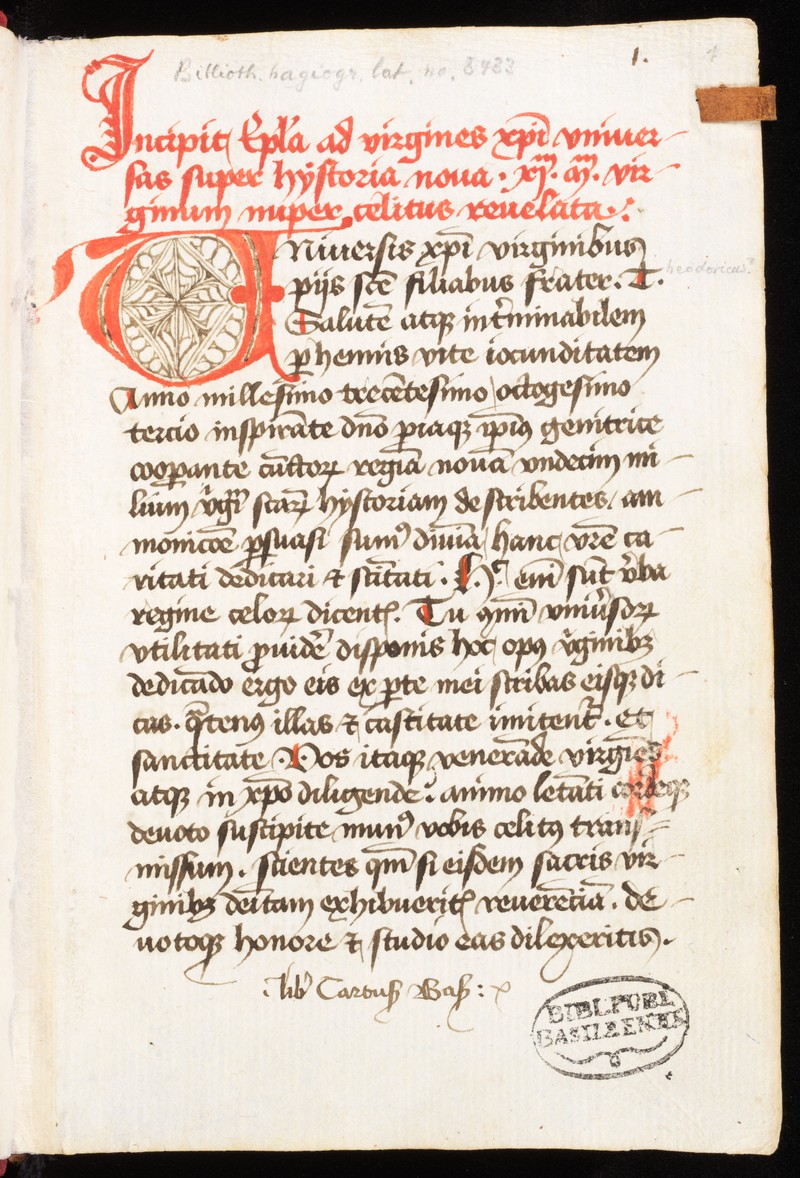 Billioth. hagiogr. lat. no. 8433
1.
Incipit Ep̄la ad virgines xp̄i vniuer-
sas super hystoria noua · xjͫ. aͫ. vir-
ginum nuper celitus reuelata :·
Vniuersis xp̄i virginibus
pijs sc̄e filiabus frater. T.
heodoricus?
Salutē atqꝫ int̄minabilem
ꝑhennis vite iocunditatem
Anno millesimo trecētesimo octogesimo
tercio inspirāte dn̄o piaqꝫ ip̄iꝰ genitrice
cooꝑante cūctoꝝ regiā nouā vndecim mi-
lium v̓gī scaꝝ hystoriam describentes am-
monicōe ꝑsuasi sumꝰ diuīa hanc vr̄e ca-
ritati dedicari ⁊ sc̄itati. Hͨ. em̄ sūt v̓ba
regine celoꝝ dicent̄. Tu qm̄ vniu̓soꝝ
vtilitati ꝓuidē disponis hoc opꝰ v̓ginibꝫ
dedicādo ergo eis ex ꝑte mei scribas eisqꝫ di-
cas. qͣtenꝰ illas ⁊ castitate imitent̄. et
sanctitate. Vos itaqꝫ venerāde virgīes
atqꝫ in xp̄o diligende : animo letāti cordeqꝫ
deuoto suscipite munꝰ vobis celitꝰ trans-
missum. scientes qm̄ si eisdem sacris vir-
ginibꝫ debitam exhibuerit̄ reuerēciā. de-
uotoqꝫ honore ⁊ studio eas dilexeritis.
: lib̓ Cartus̄ Bas̄ :
BIBL. PUBL.
BASILEENSIS